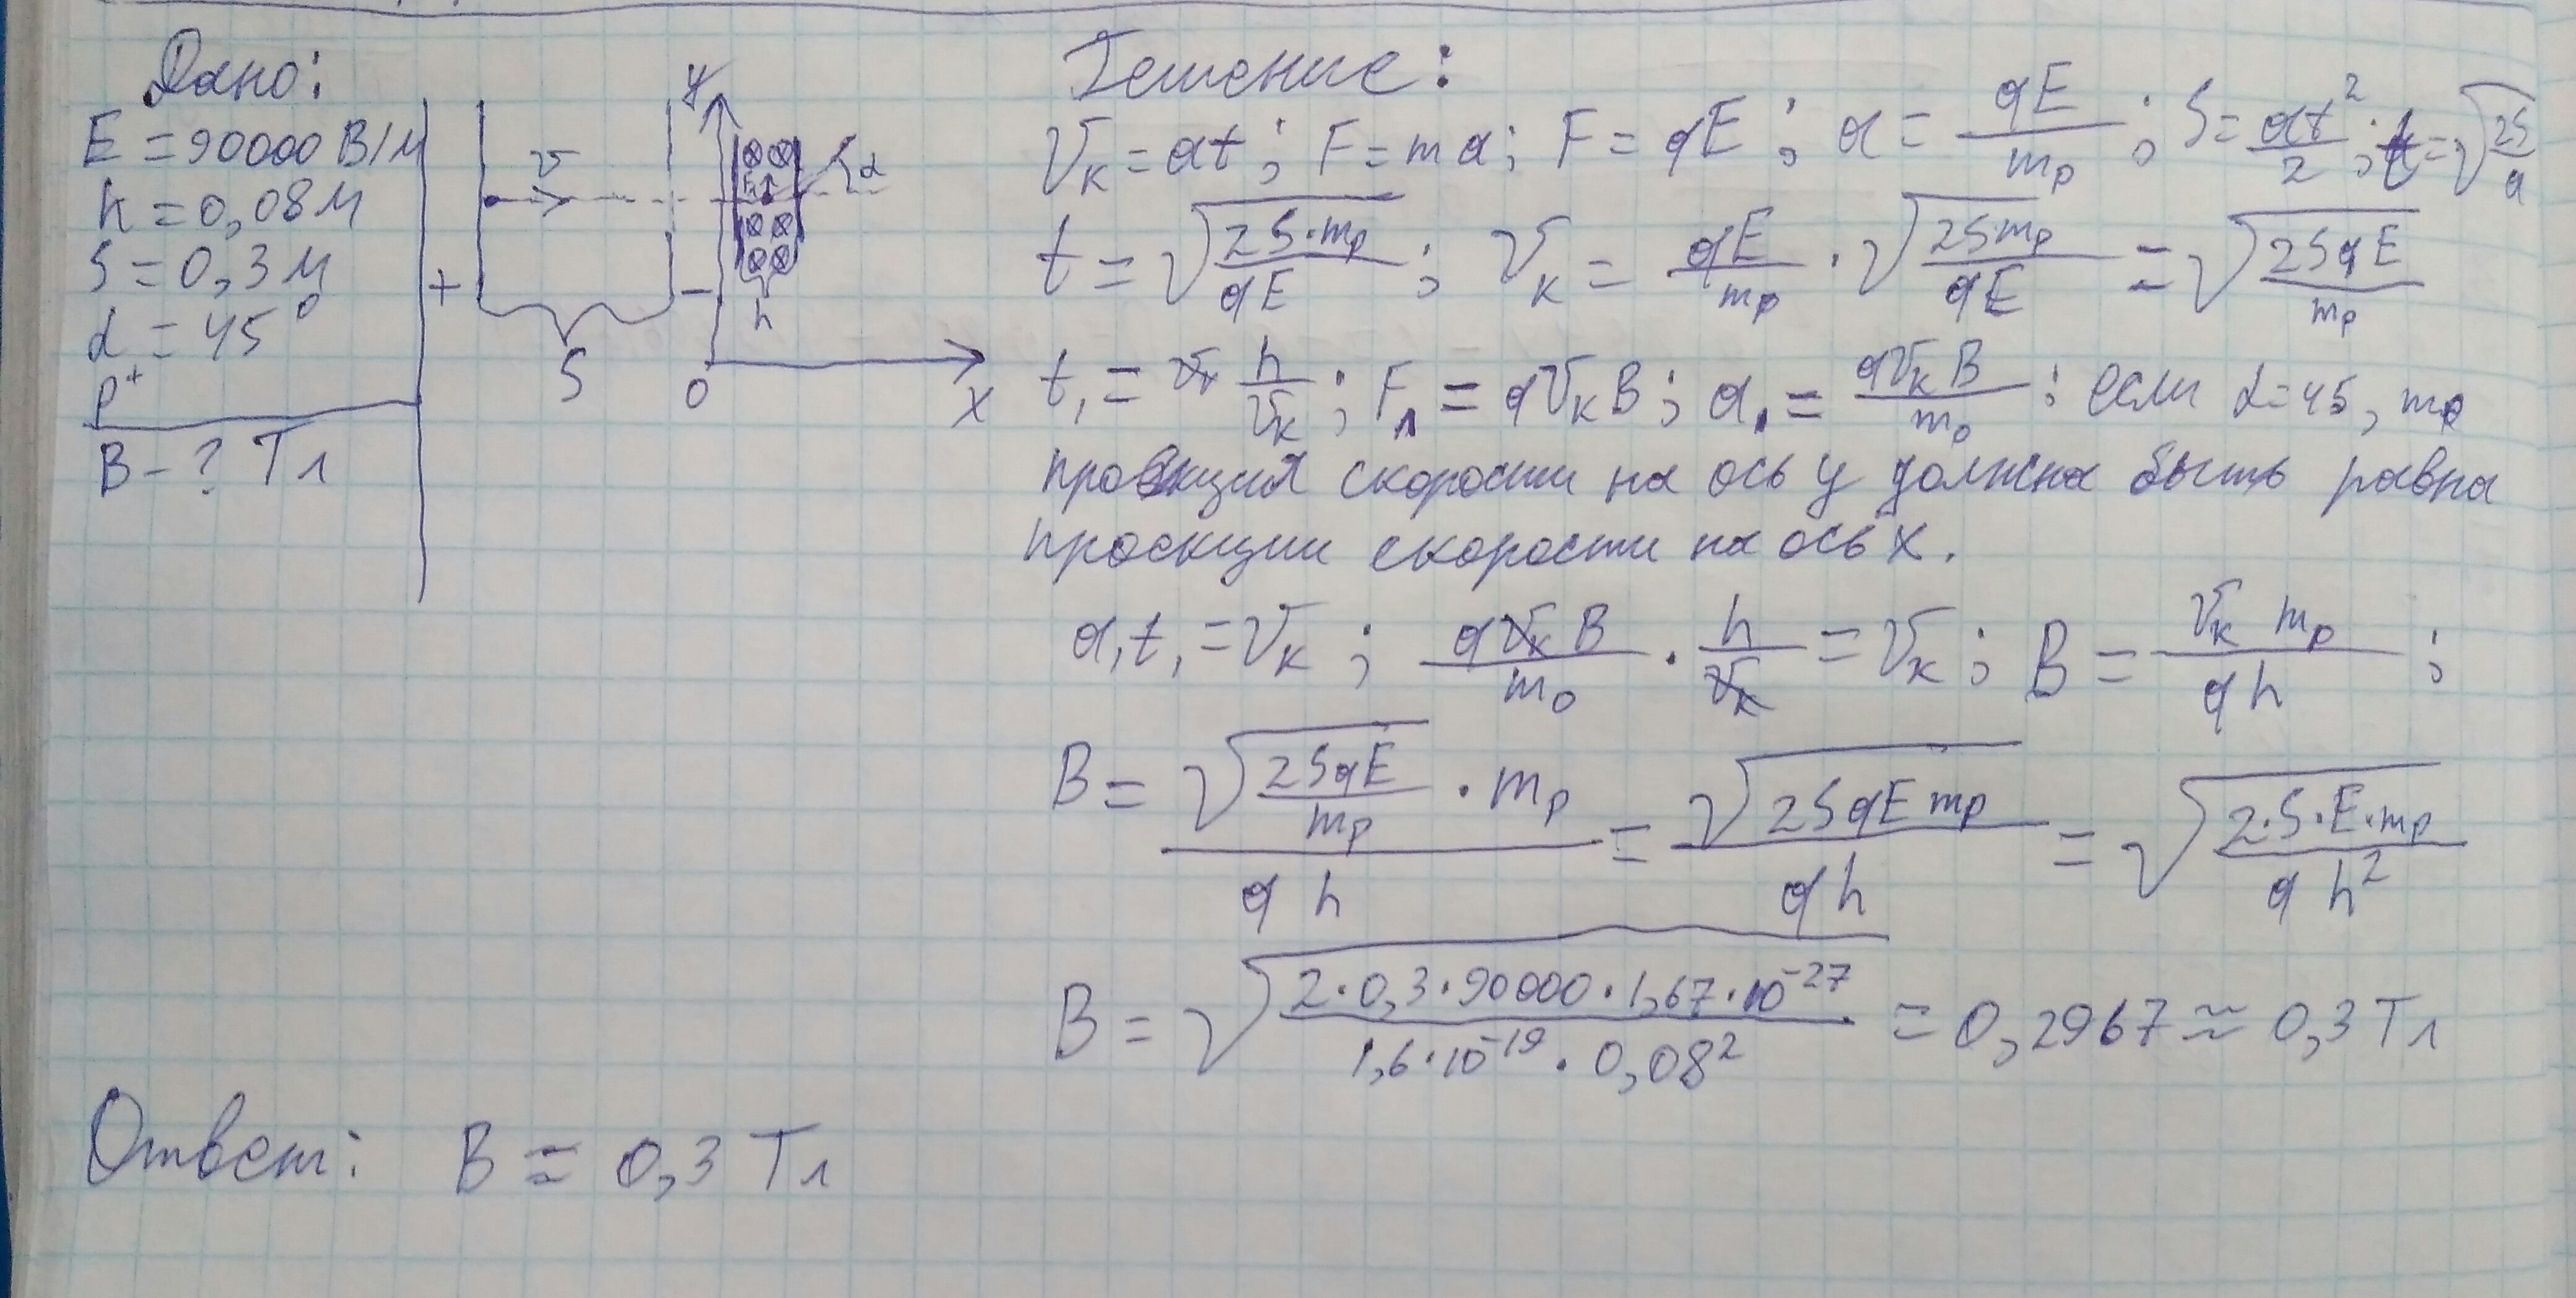 Дано:
E = 90000 В/м
h = 0,08 м
S = 0,3 м
α = 45°
p⁺
B - ? Тл
y
v
α
+
-
h
S
0
x
Решение:
Vк = at; F = ma; F = qE; a = qE/mp; S = at²/2; t = √(2S/a)
t = √(2S·mp/qE); Vк = qE/mp · √(2Smp/qE) = √(2SqE/mp)
t₁ = h/Vк; Fл = qVкB; a₁ = qVкB/mp; если α=45, то
проекция скорости на ось y должна быть равна
проекции скорости на ось x.
a₁t₁ = Vк; qVкB/mp · h/Vк = Vк; B = Vк mp/qh;
B = √(2SqE/mp) · mp / qh = √(2SqEmp) / qh = √(2·S·E·mp / q h²)
B = √(2·0,3·90000·1,67·10⁻²⁷ / 1,6·10⁻¹⁹ · 0,08²) = 0,2967 ≈ 0,3 Тл
Ответ: B ≈ 0,3 Тл